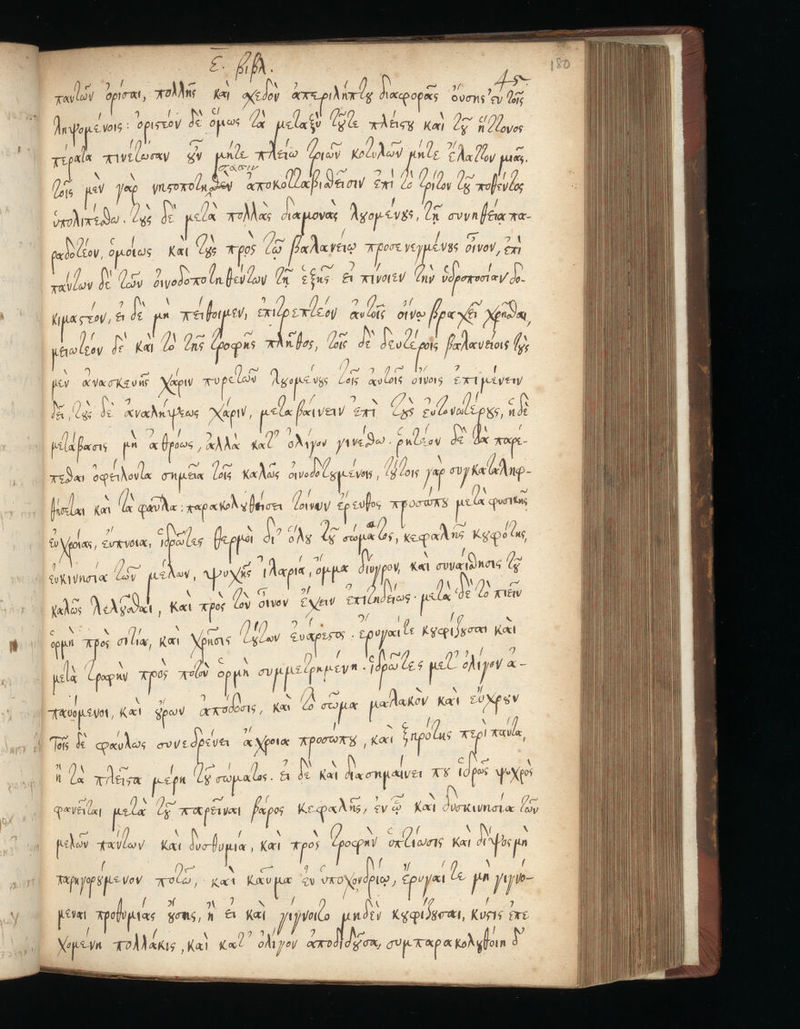 Ε. βιβλ.
180
45
παντῶν ὁρίσαι, πολλῆς καὶ σχεδὸν ἀπεριλήπτου διαφορᾶς οὔσης ἐν τοῖς
ληψομένοις: ὁριστέον δὲ ὅμως τὰ μεταξὺ τοῦτε πλείςου καὶ τοῦ ἥττονος
πέρατα πινέτωσαν οὖν μήτε πλείω τριῶν κοτυλῶν μήτε ἔλαττον μιᾶς.
τοῖς μὲν γὰρ ἀποκοτταβιθεῖσιν ἐπὶ τὸ τρίτον τοῦ ποθέντος
ὑπολιπέσθω. τοὺς δὲ μετὰ πολλὰς διαμονὰς λουομένους, τῇ συνηθείᾳ πα-
ραδοτέον, ὁμοίως καὶ τοὺς πρὸς τῷ βαλανείῳ προσενεγμένους οἶνον, ἐπὶ
πάντων δὲ τῶν οἰνοδοποτηθέντων τῇ ἑξῆς εἰ πίνοιεν τὴν ὑδροποσίαν δο-
κιμαστέον, εἰ δὲ μὴ πείθοιμεν, ἐπιτρεπτέον αὐτοῖς οἴνῳ βραχεῖ χρῆσθαι,
μειωτέον δὲ καὶ τὸ τῆς τροφῆς πλῆθος, τοῖς δὲ δευτέροις βαλανείοις τοὺς
μὲν ἀνασκευῆς χάριν πυρετῶν λουομένους τοῖς αὐτοῖς οἴνοις ἐπιμένειν
δεῖ, τοὺς δὲ ἀναλήψεως χάριν, μεταβαίνειν ἐπὶ τοὺς εὐτονωτέρους, ἡ δὲ
μετάβασις μὴ ἀθρόως, ἀλλὰ κατ' ὀλίγον γινέσθω. ῥητέον δὲ τὰ παρέ-
πεσθαι ὀφείλοντα σημεῖα τοῖς καλῶς οἰνοδοτουμένοις, τούτοις γὰρ συγκαταληφ-
θήσεται καὶ τὰ φαῦλα: παρακολουθήσει τοίνυν ἔρευθος προσώπου μετὰ φυσικῆς
εὐχροίας, εὔπνοια, ἱδρῶτες θερμοὶ δι' ὅλου τοῦ σώματος, κεφαλῆς κουφότης,
εὐκινησία τῶν μελῶν, ψυχῆς ἱλαρία, ὄμμα δίυγρον, καὶ συναίσθησις τοῦ
καλῶς λελοῦσθαι, καὶ πρὸς τὸν οἶνον ἔχειν ἐπιτηδείως. μετὰ δὲ τὸ πιεῖν
ὁρμὴ πρὸς σιτία, καὶ χρῆσις τούτων εὐάρεστος. ἐρυγαίτε κουφίζουσαι καὶ
μετὰ τροφὴν πρὸς ποτὸν ὁρμὴ συμμετρημένη. ἱδρῶτες μετ' ὀλίγον ἀ-
παυόμενοι, καὶ οὔρων ἀπόδοσις, καὶ τὸ σῶμα μαλακὸν καὶ εὔχρουν
τοῖς δὲ φαύλως συνεδρεύει ἄχροια προσώπου, καὶ ξηρότης περὶ πάντα,
ἢ τὰ πλεῖστα μέρη τοῦ σώματος. εἰ δὲ καὶ διασημαίνει που ἱδρῶς ψυχρὸς
φανεῖται μετὰ τοῦ παρεῖναι βάρος κεφαλῆς, ἐν ᾧ καὶ δυσκινησία τῶν
μελῶν πάντων καὶ δυσθυμία, καὶ πρὸς τροφὴν ὑπτίωσις καὶ δίψος μὴ
παρηγορούμενον ποτῷ, καὶ καῦμα ἐν ὑποχονδρίῳ, ἐρυγαί τε μὴ γιγνό-
μεναι προθυμίας οὔσης, ἢ εἰ καὶ γίγνοιτο μηδὲν κουφίζουσαι, κύστις ἐπε
χομένη πολλάκις, καὶ κατ' ὀλίγον ἀποδιδοῦσα, συμπαρακολουθοίη δ'